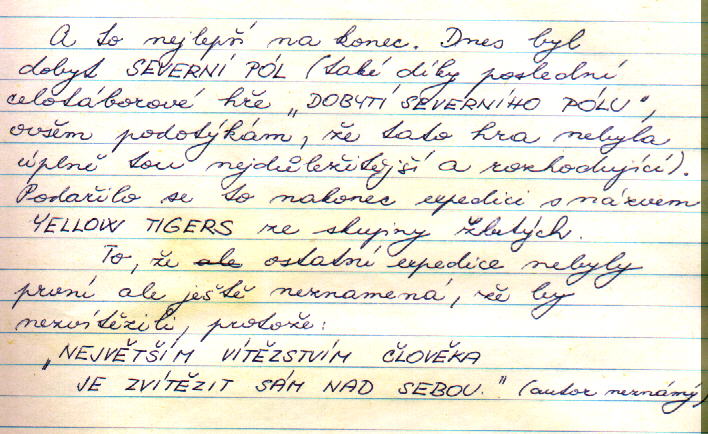 A to nejlepší na konec. Dnes byl
dobyt SEVERNÍ PÓL (také díky poslední
celotáborové hře „DOBYTÍ SEVERNÍHO PÓLU",
ovšem podotýkám, že tato hra nebyla
úplně tou nejdůležitější a rozhodující).
Podařilo se to nakonec expedici s názvem
YELLOW TIGERS ze skupiny Žlutých.
To, že ale ostatní expedice nebyly
první ale ještě neznamená, že by
nezvítězili, protože:
„NEJVĚTŠÍM VÍTĚZSTVÍM ČLOVĚKA
JE ZVÍTĚZIT SÁM NAD SEBOU." (autor neznámý)